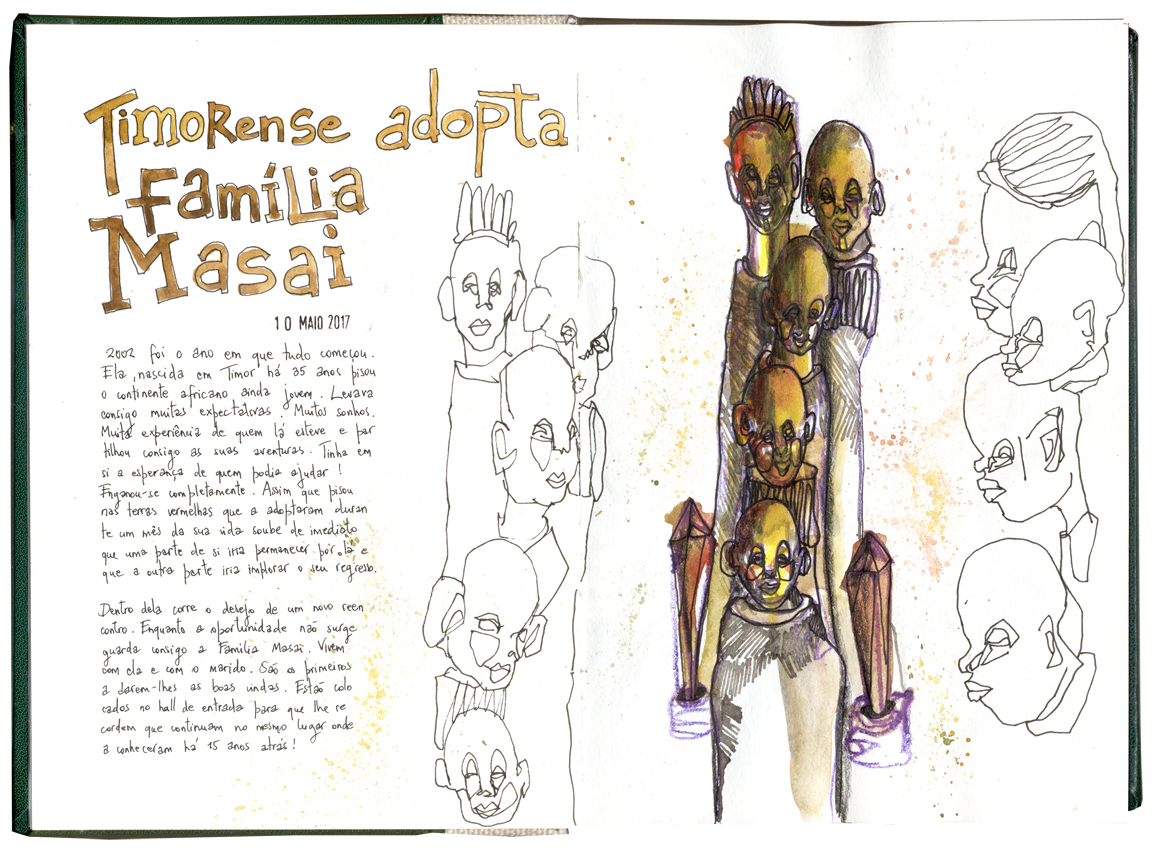 Timorense adopta
família
Masai
10 MAIO 2017
2002 foi o ano em que tudo começou.
Ela, nascida em Timor há 35 anos pisou
o continente africano ainda jovem. Levava
consigo muitas expectativas. Muitos sonhos.
Muita experiência de quem lá esteve e par
tilhou consigo as suas aventuras. Tinha em
si a esperança de quem podia ajudar!
Enganou-se completamente. Assim que pisou
nas terras vermelhas que a adoptaram duran
te um mês da sua vida soube de imediato
que uma parte de si iria permanecer por lá e
que a outra parte iria implorar o seu regresso.
Dentro dela corre o desejo de um novo reen
contro. Enquanto a oportunidade não surge
guarda consigo a Família Masai. Vivem
com ela e com o marido. São os primeiros
a darem-lhes as boas vindas. Estão colo
cados no hall de entrada para que lhe re
cordem que continuam no mesmo lugar onde
a conheceram há 15 anos atrás!